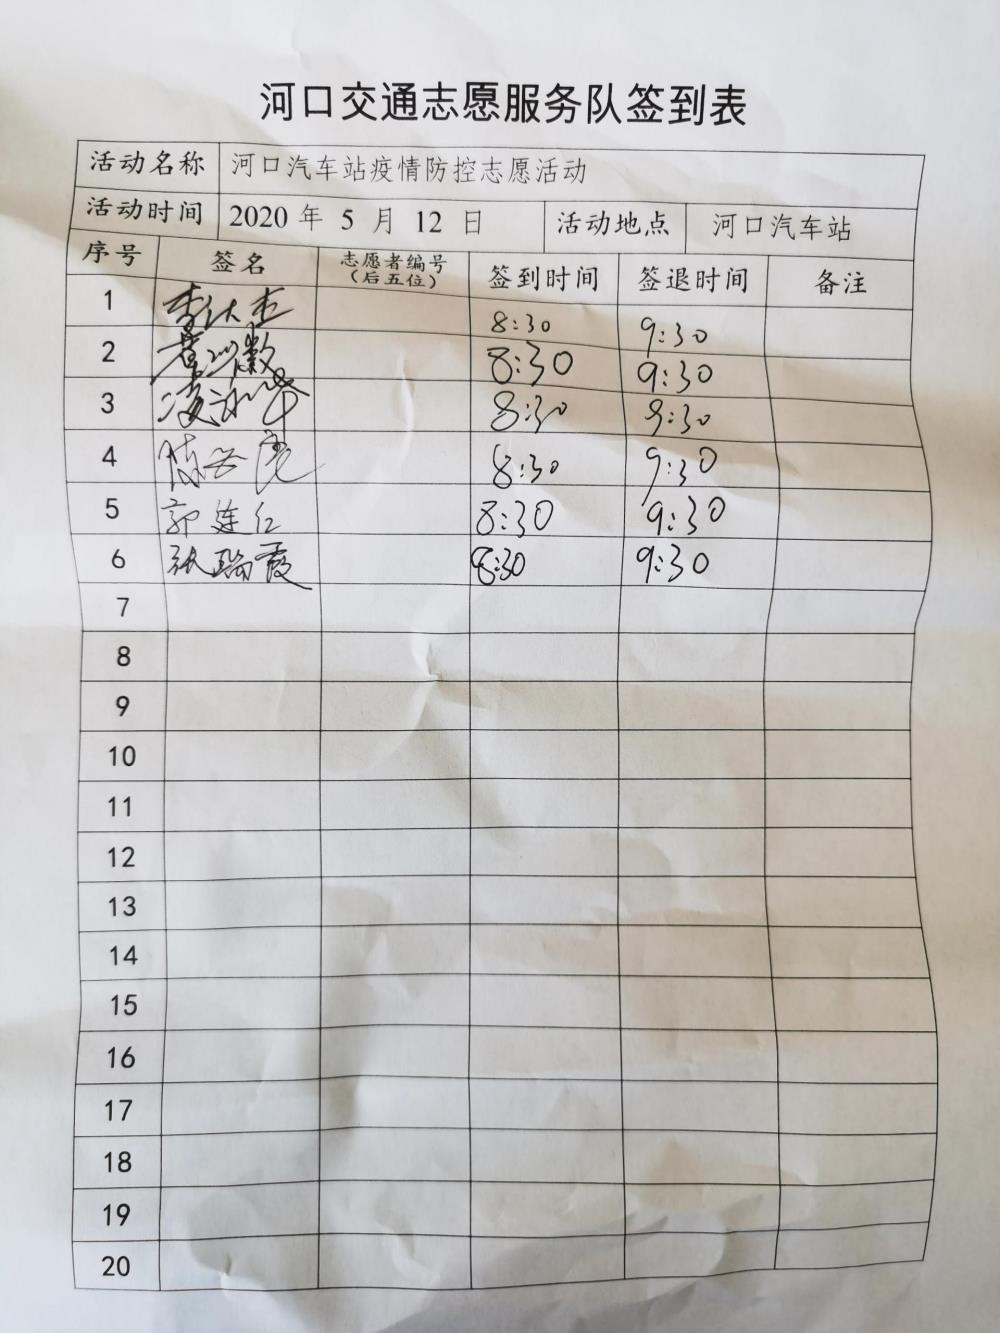 河口交通志愿服务队签到表
活动名称 河口汽车站疫情防控志愿活动
活动时间 2020 年 5 月 12 日 活动地点 河口汽车站
序号 签名 志愿者编号（后五位） 签到时间 签退时间 备注
1 8:30 9:30
2 8:30 9:30
3 8:30 9:30
4 8:30 9:30
5 郭连仁 8:30 9:30
6 张瑞霞 8:30 9:30
7
8
9
10
11
12
13
14
15
16
17
18
19
20